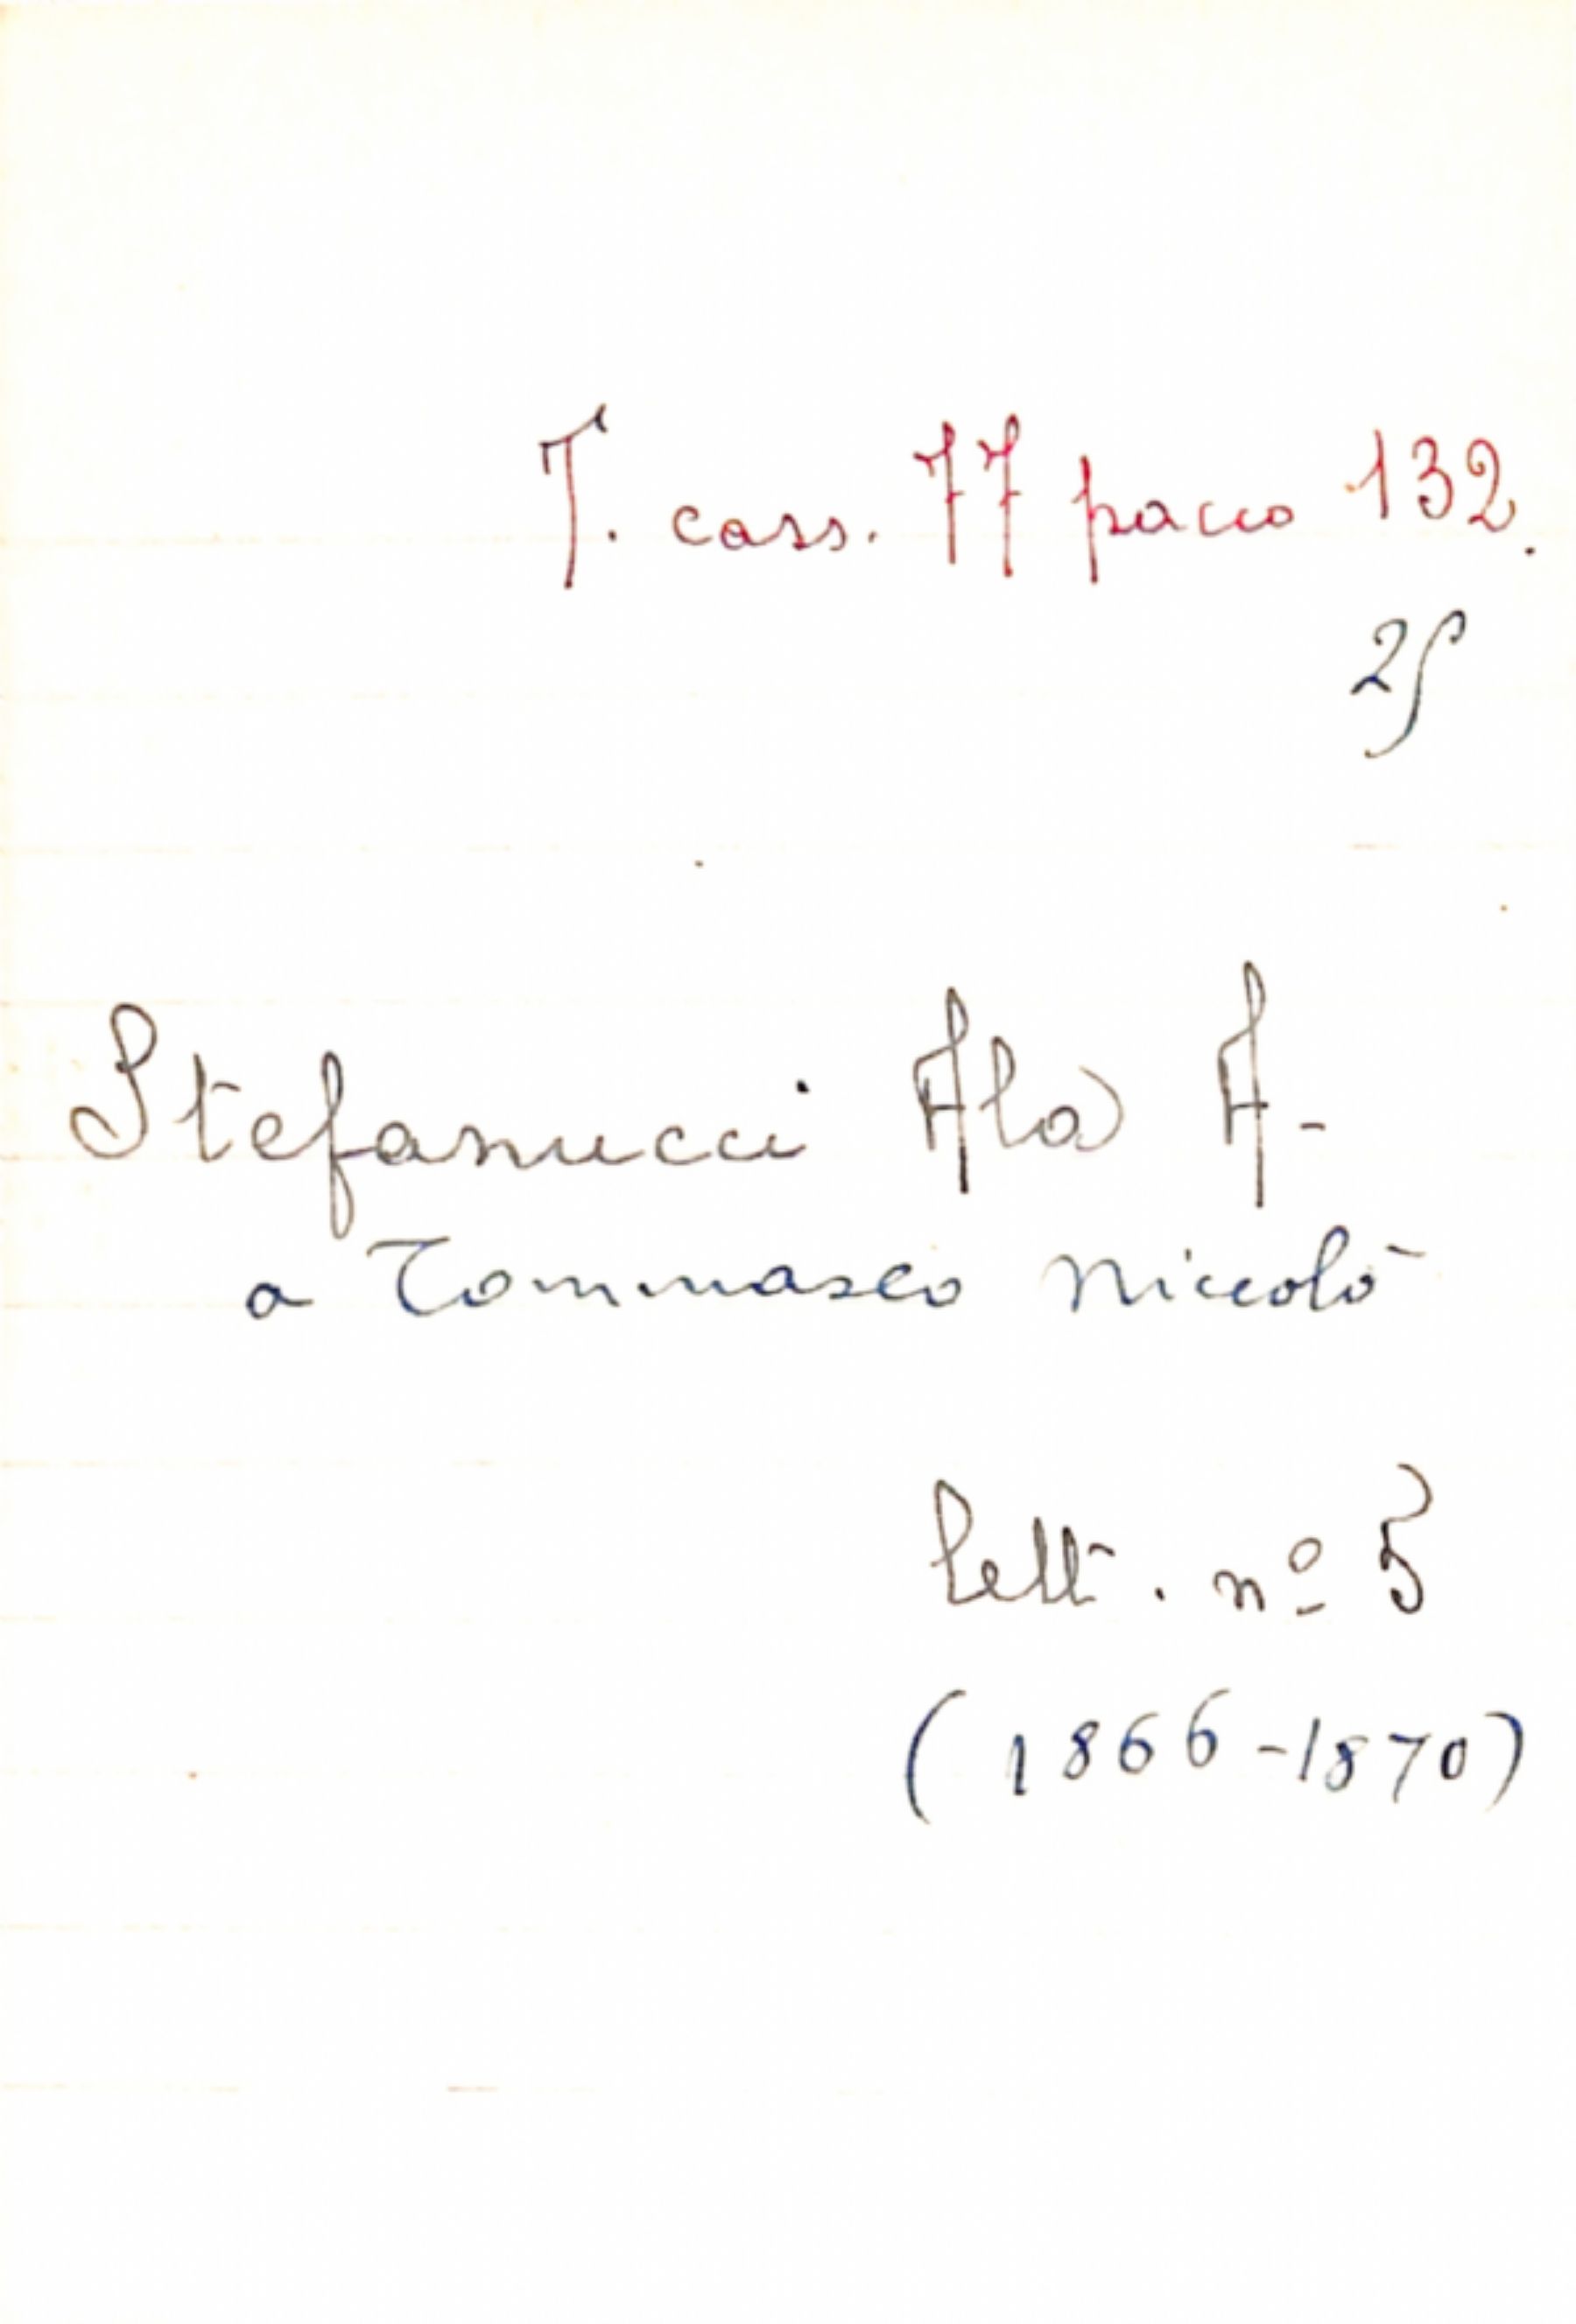 T. cass. 77 pacco 132.
25
Stefanucci Ala A.
a Tommaseo Niccolò
Lett. nº 5
(1866-1870)